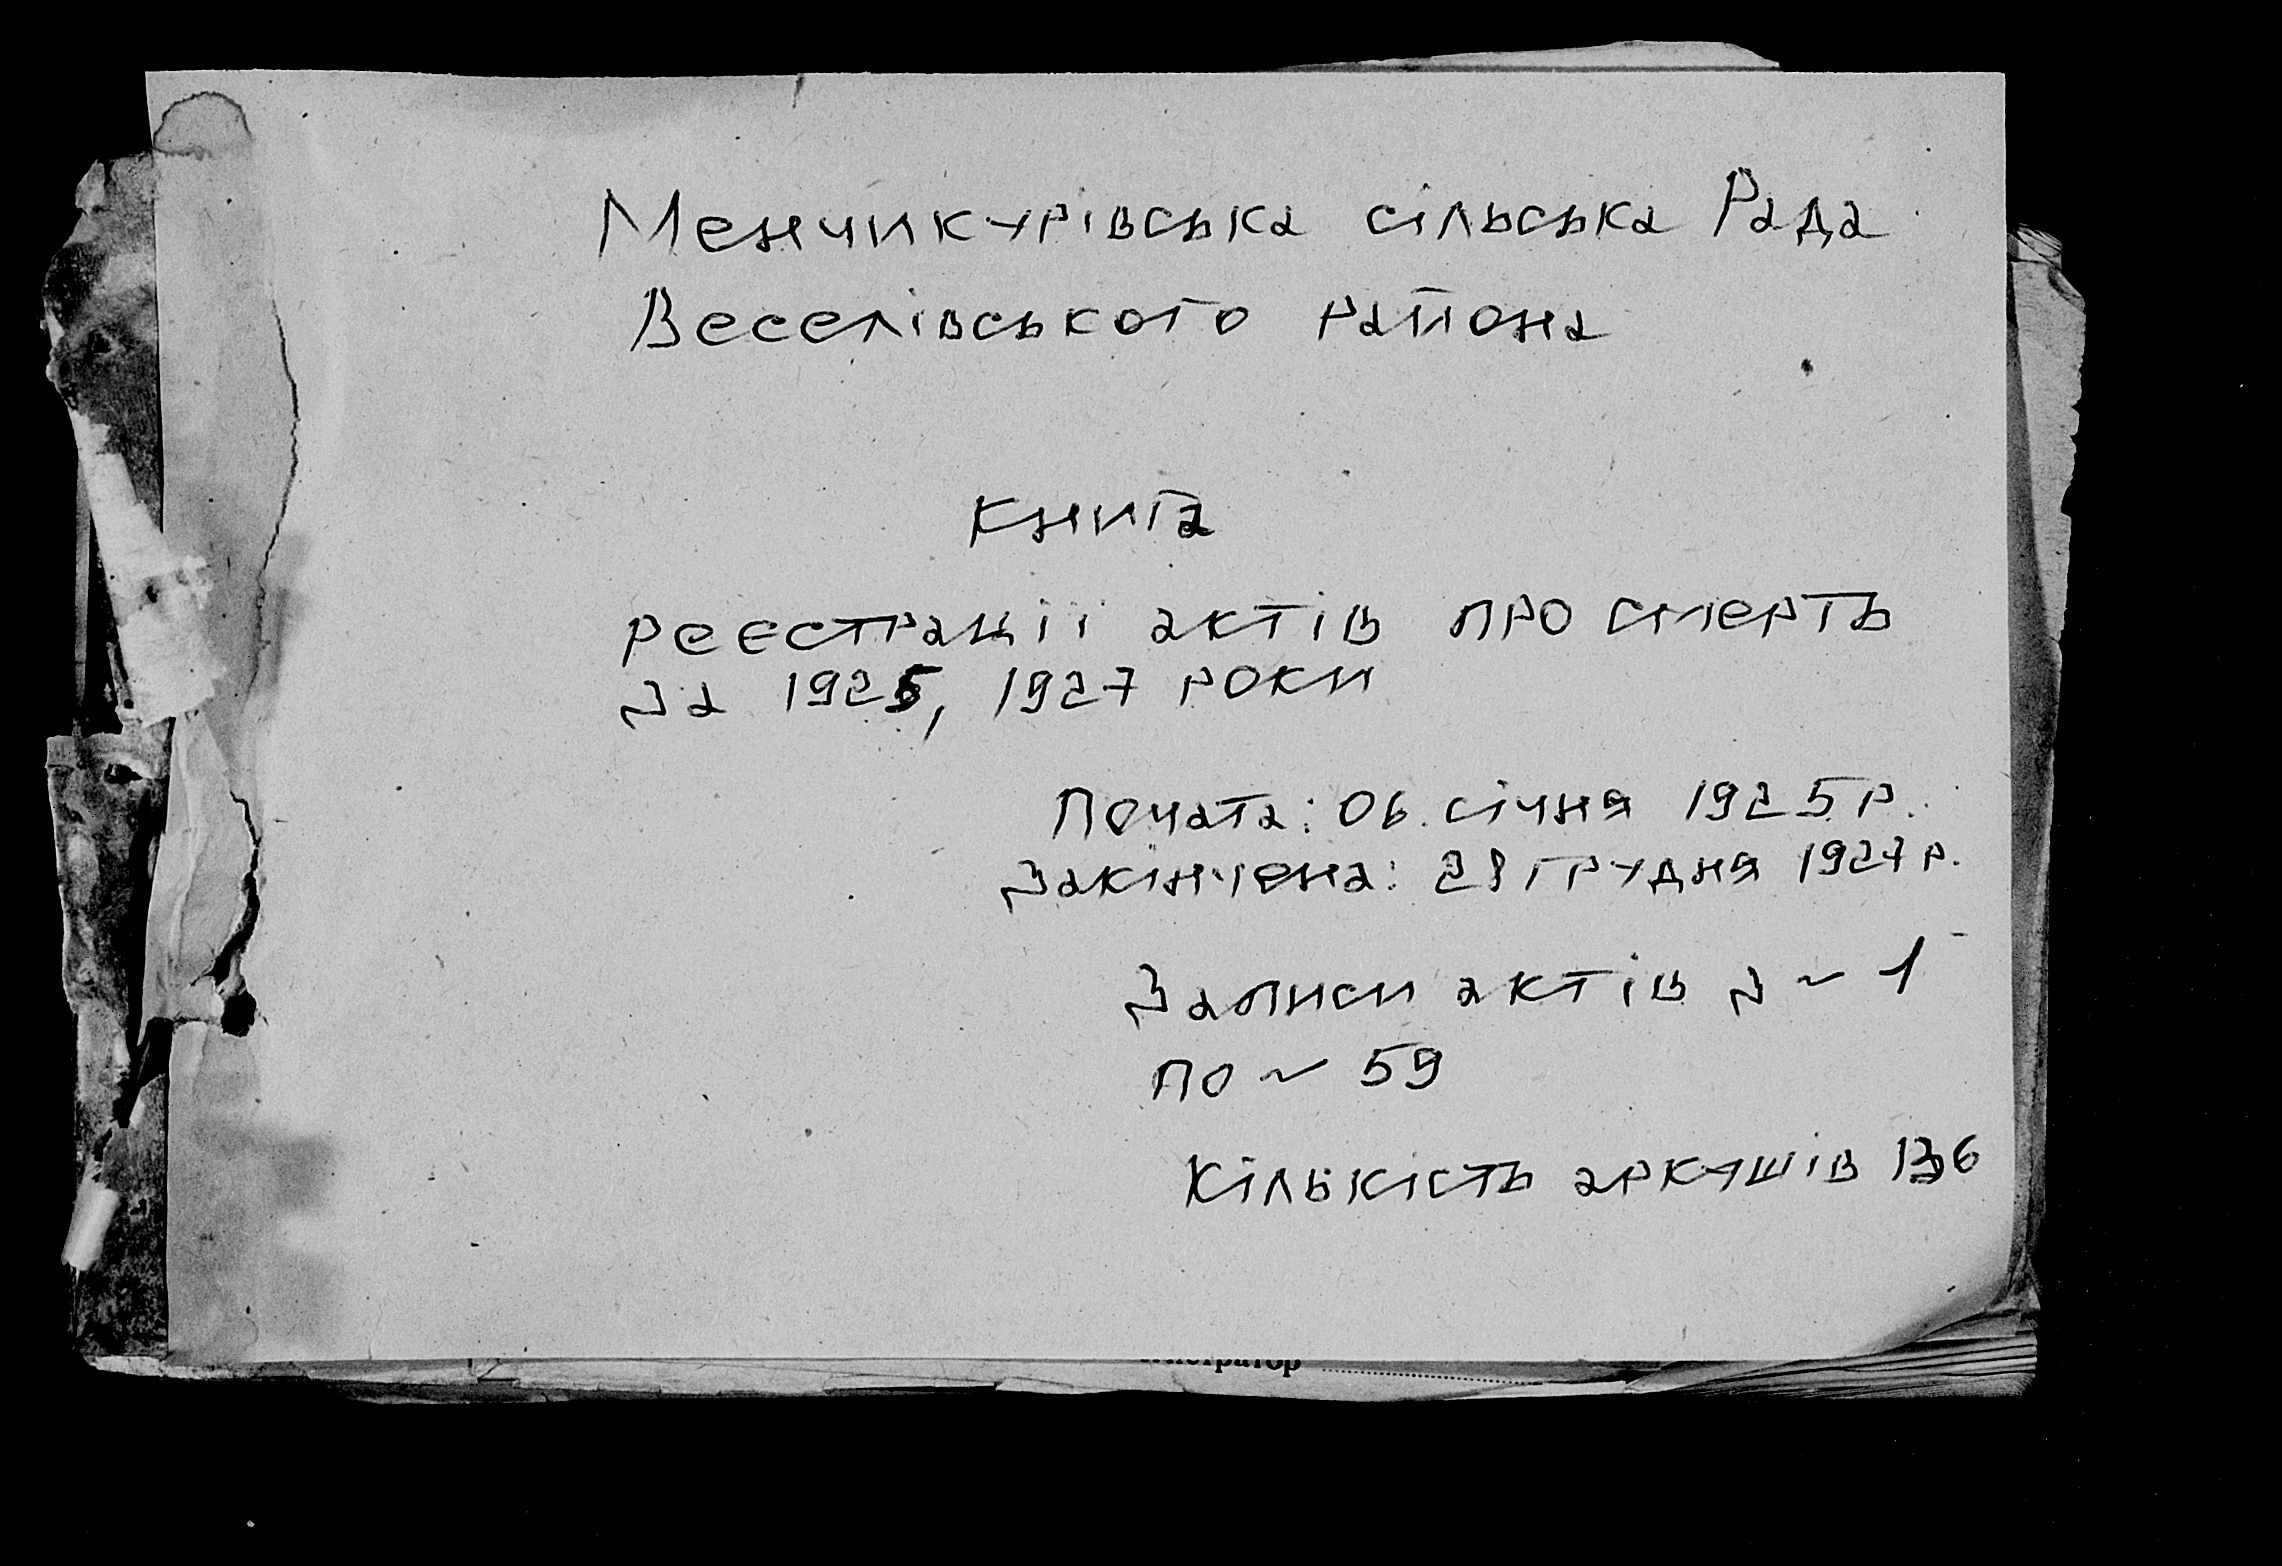 Менчикурівська сільська Рада
Веселівського района
книга
реєстрації актів про смерть
за 1925, 1927 роки
Почата: 06. січня 1925 р.
Закінчена: 28 грудня 1927 р.
Записи актів з ~ 1
по ~ 59
Кількість аркушів 136